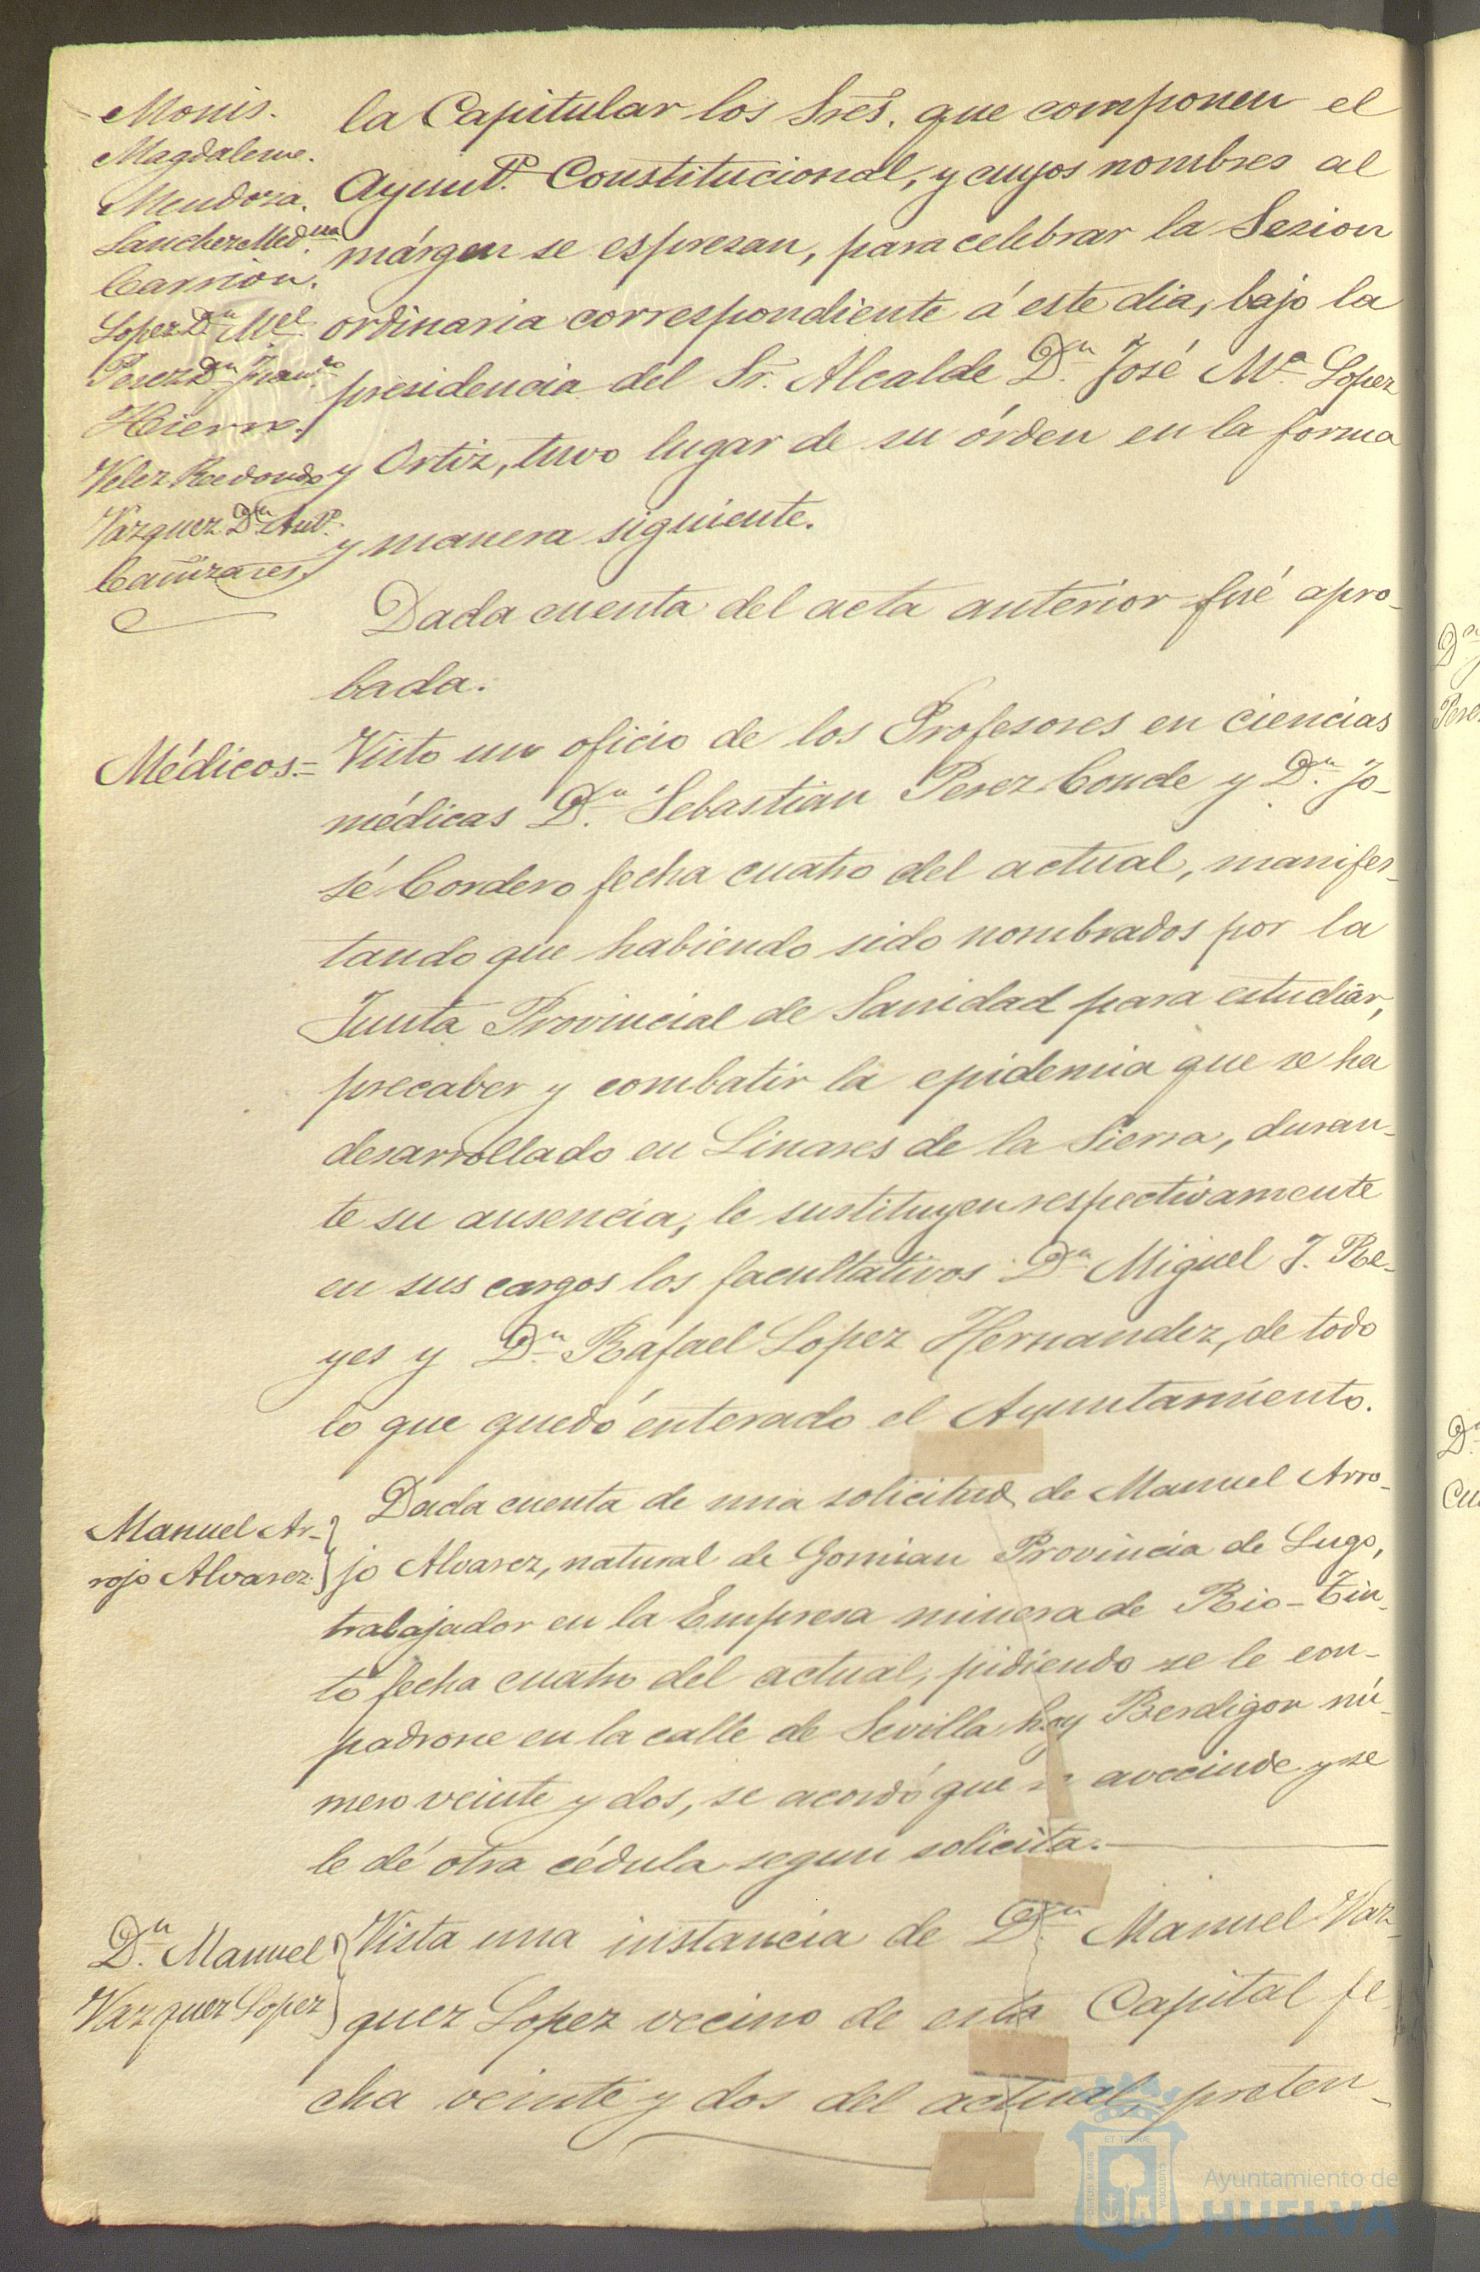 Monis.
Magdalena.
Mendoza.
Sanchez Med.na
Carrion.
Lopez Dn. Mel.
Perez Dn. Fran.co
Hierro.
Velez Redondo
Vazquez Dn. Anto.
Cañizares.
la Capitular los Sres. que componen el
Ayunto. Constitucional, y cuyos nombres al
márgen se espresan, para celebrar la Sesion
ordinaria correspondiente á este dia, bajo la
presidencia del Sr. Alcalde Dn. José Ma. Lopez
y Ortiz, tuvo lugar de su órden en la forma
y manera siguiente.
Dada cuenta del acta anterior fué apro-
bada.
Médicos.=
Visto un oficio de los Profesores en ciencias
médicas Dn. Sebastian Perez Conde y Dn. Jo-
sé Cordero fecha cuatro del actual, manifes-
tando que habiendo sido nombrados por la
Junta Provincial de Sanidad para estudiar,
precaber y combatir la epidemia que se ha
desarrollado en Linares de la Sierra, duran-
te su ausencia, le sustituyen respectivamente
en sus cargos los facultativos Dn. Miguel J. Re-
yes y Dn. Rafael Lopez Hernandez, de todo
lo que quedó enterado el Ayuntamiento.
Manuel Ar-
rojo Alvarez.
Dada cuenta de una solicitud de Manuel Arro-
jo Alvarez, natural de Gomian Provincia de Lugo,
trabajador en la Empresa minera de Rio-Tin-
to fecha cuatro del actual, pidiendo se le em-
padrone en la calle de Sevilla hoy Berdigon nú-
mero veinte y dos, se acordó que se avecinde y se
le dé otra cédula segun solicita.
Dn. Manuel
Vazquez Lopez
Vista una instancia de Dn. Manuel Vaz-
quez Lopez vecino de esta Capital fe-
cha veinte y dos del actual, preten-
Ayuntamiento de
HUELVA
Dn
Perez
Dn
Cu